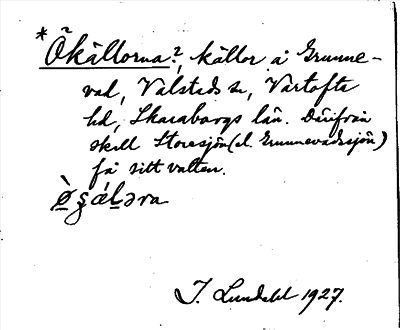 *Ökällorna?, källor å Grunne-
vad, Valstads sn, Vartofta
hd, Skaraborgs län. Därifrån
skall Storesjön (el. Grunnevadssjön)
få sitt vatten.
J. Lundahl 1927.